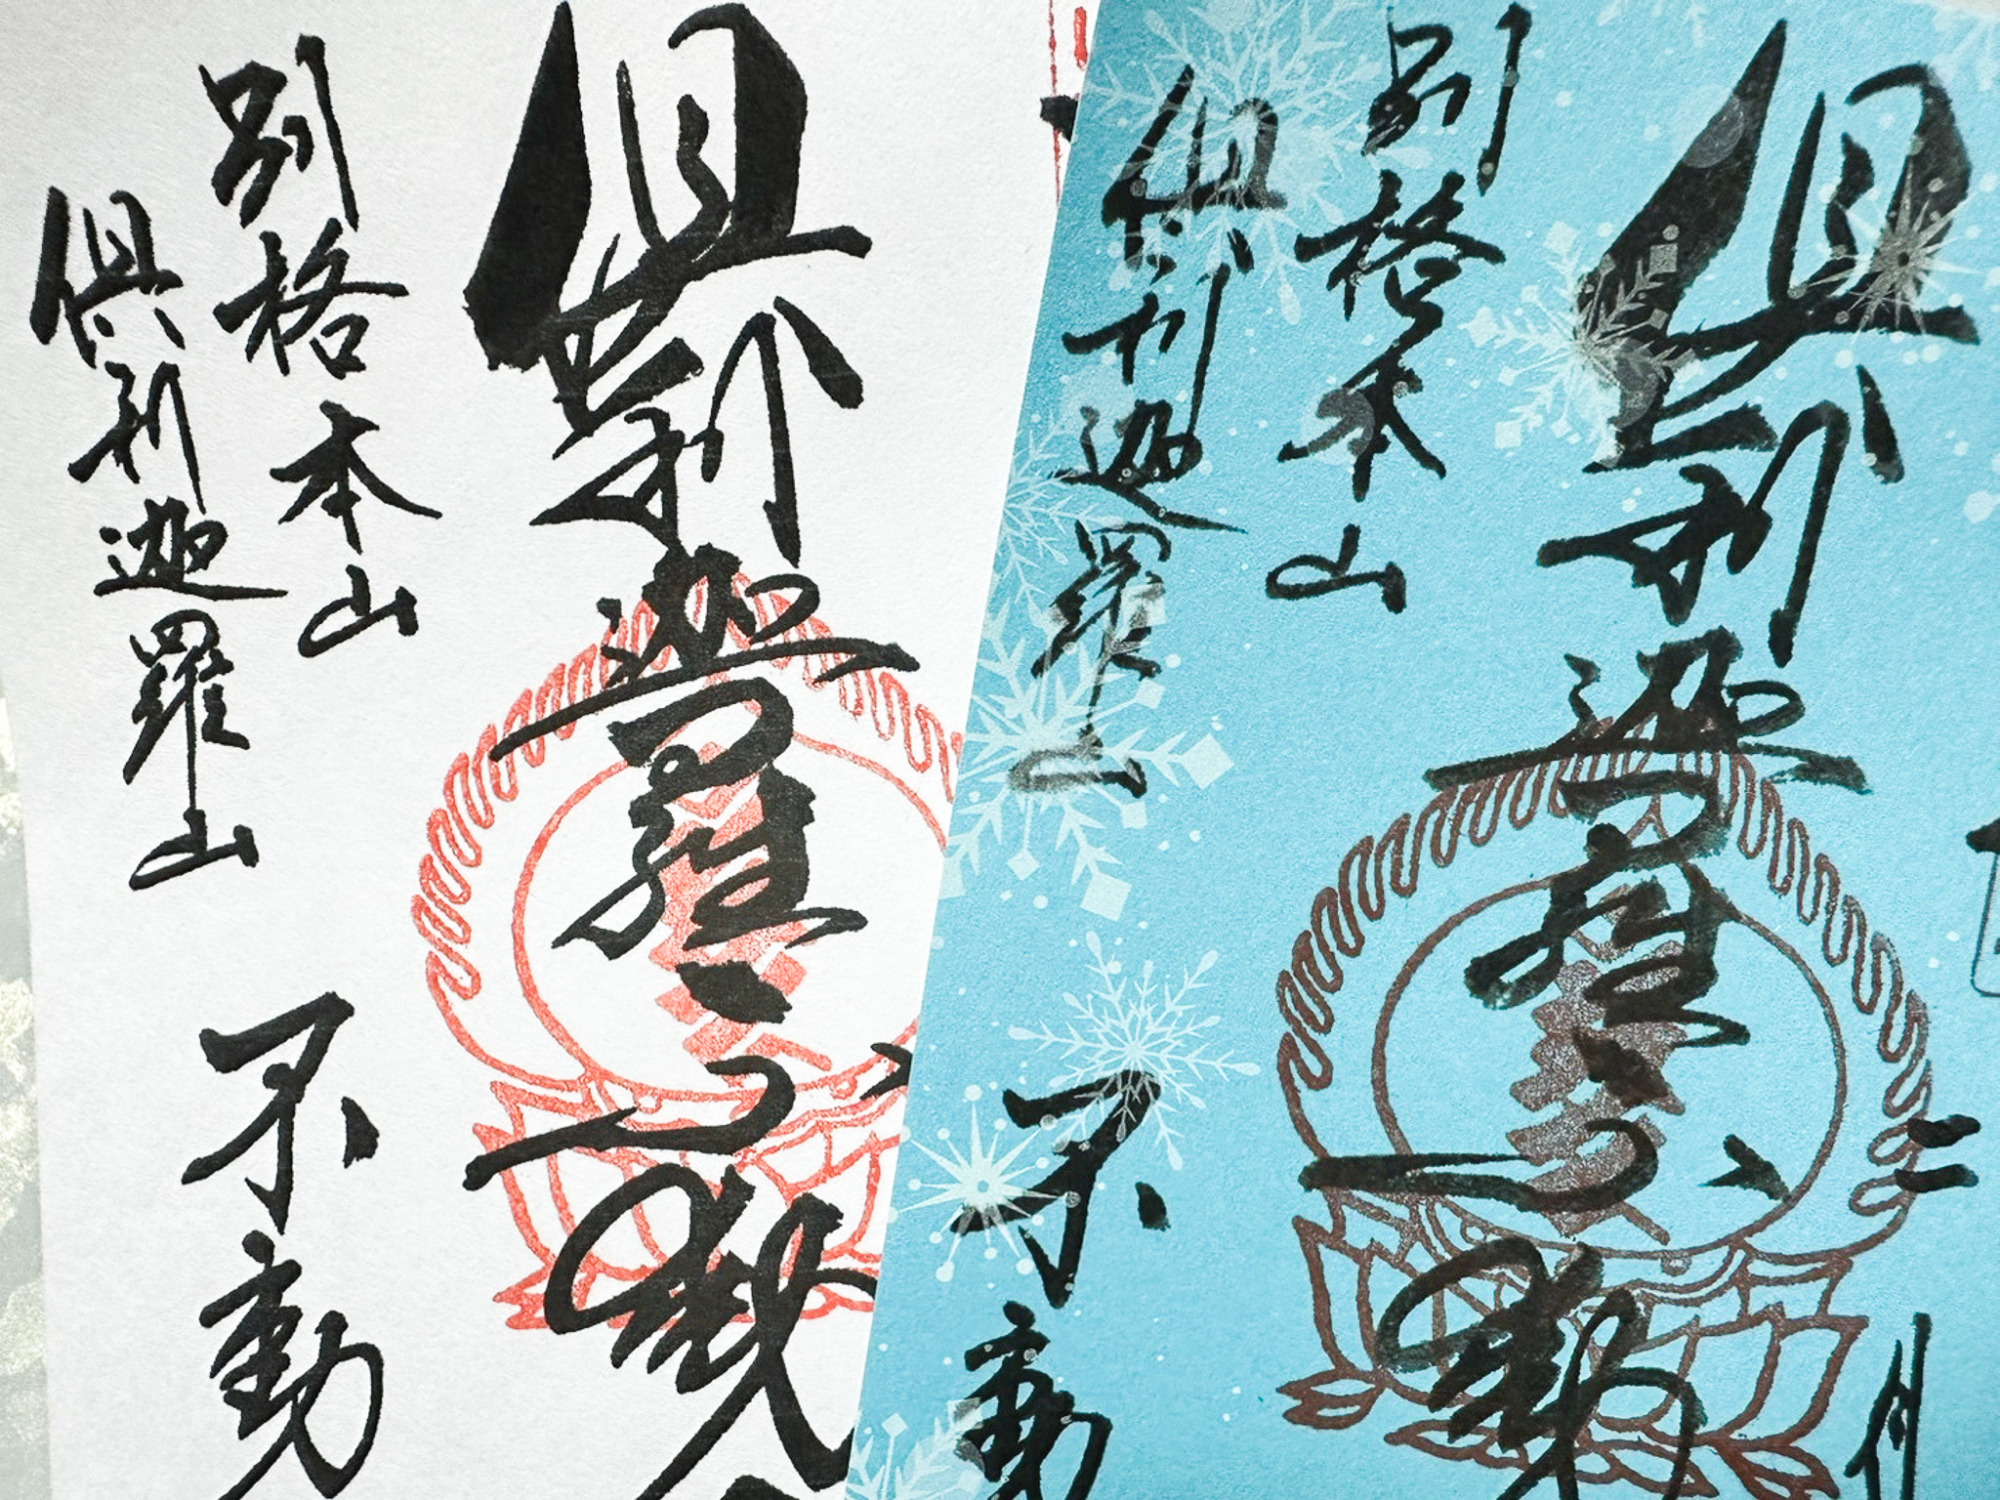 倶利迦羅不動
別格本山
倶利迦羅山
不動
倶利迦羅不動
別格本山
倶利迦羅山
不動